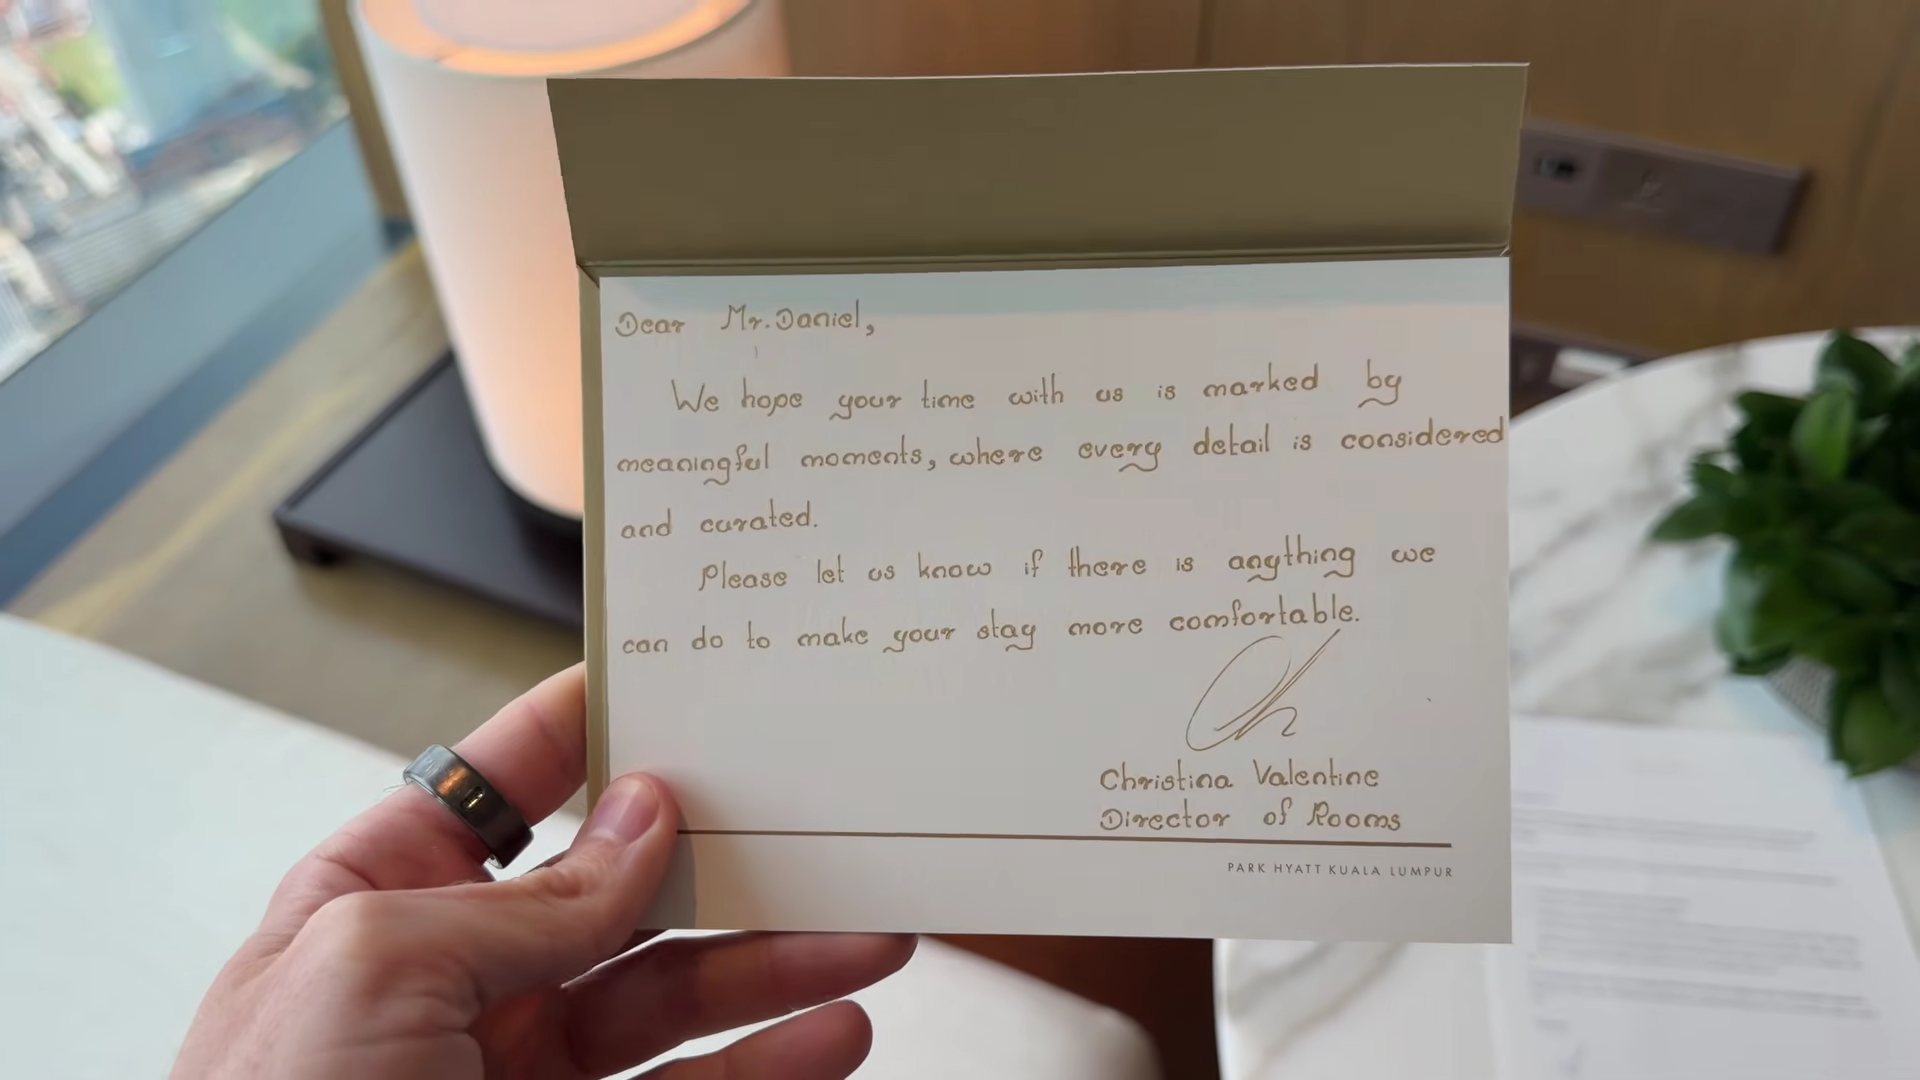 Dear Mr. Daniel,
We hope your time with us is marked by
meaningful moments, where every detail is considered
and curated.
Please let us know if there is anything we
can do to make your stay more comfortable.
Christina Valentine
Director of Rooms
PARK HYATT KUALA LUMPUR